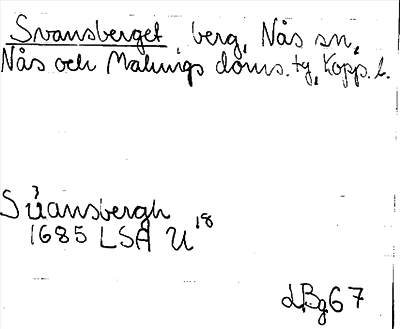 Svansberget, berg, Nås sn,
Nås och Malungs doms. tg, Kopp. l.
Sůansbergh
1685 LSA U 18
LBg 67